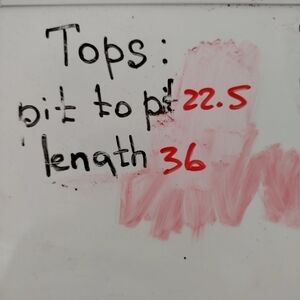 Tops:
pit to pit 22.5
length 36